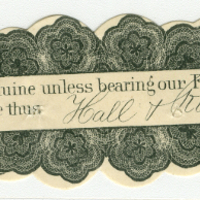 uine unless bearing our F
e thus Hall &